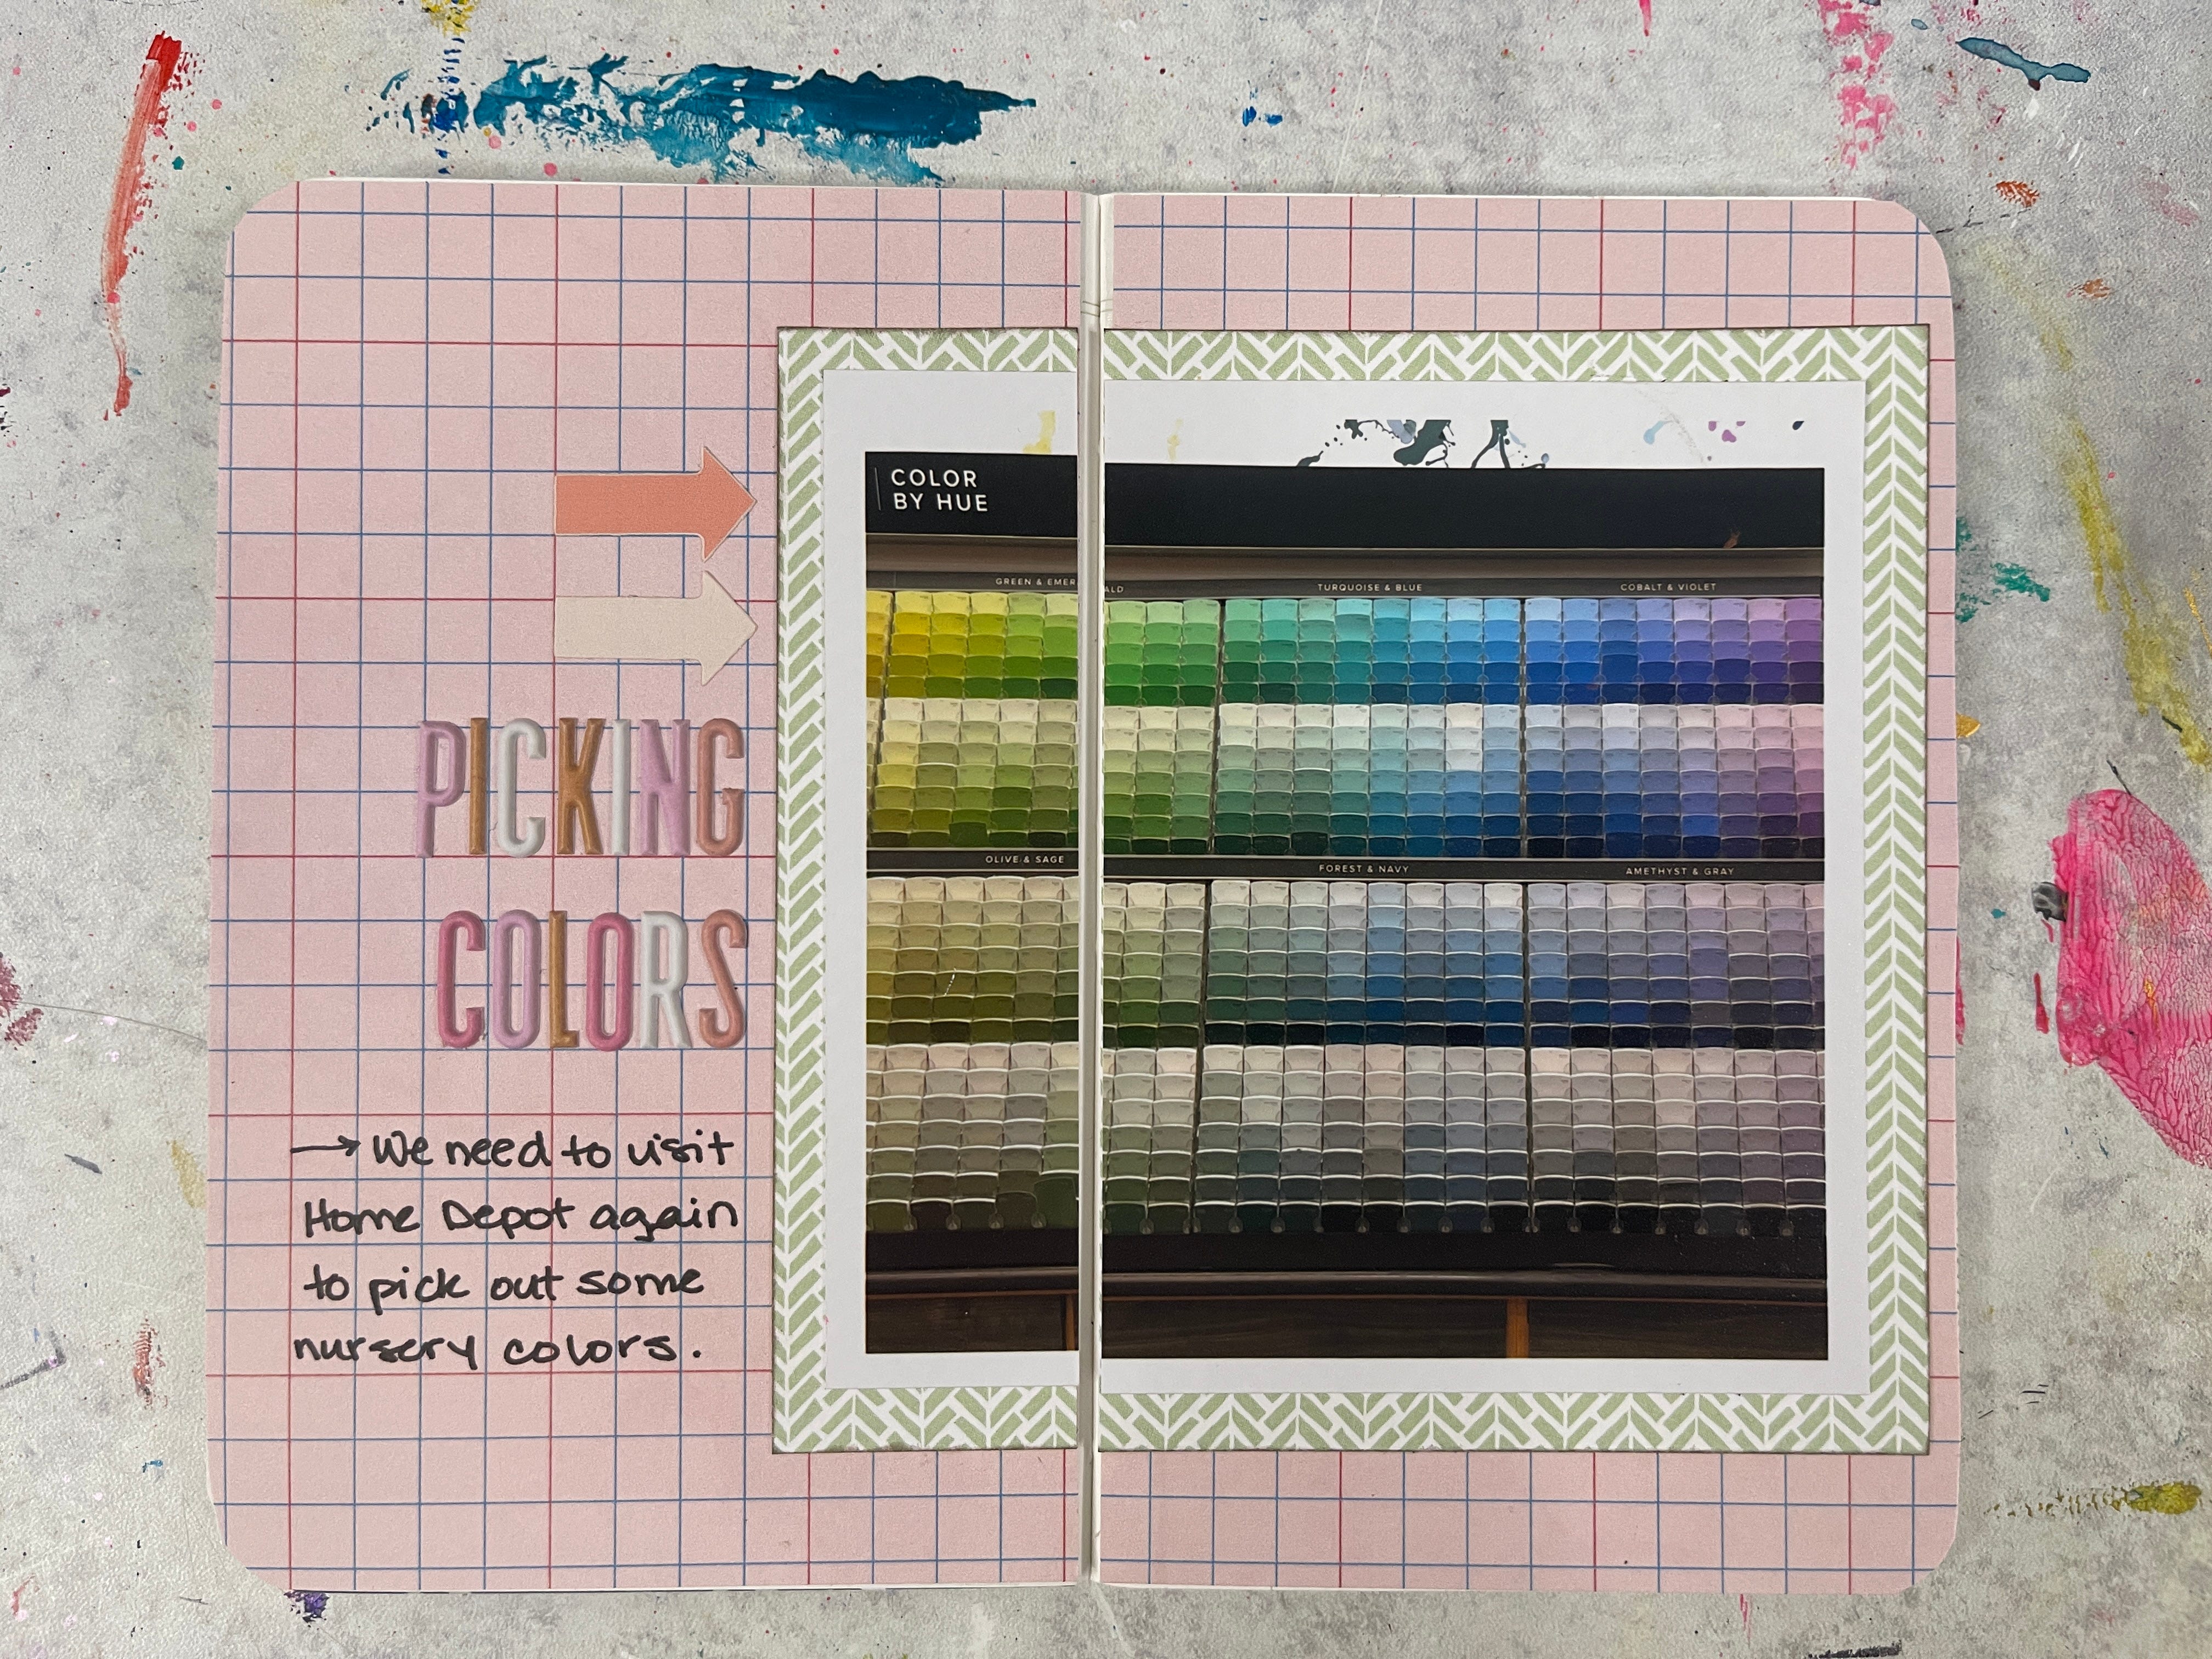 COLOR
BY HUE
GREEN & EMERALD
TURQUOISE & BLUE
COBALT & VIOLET
PICKING
COLORS
OLIVE & SAGE
FOREST & NAVY
AMETHYST & GRAY
→ We need to visit
Home Depot again
to pick out some
nursery colors.